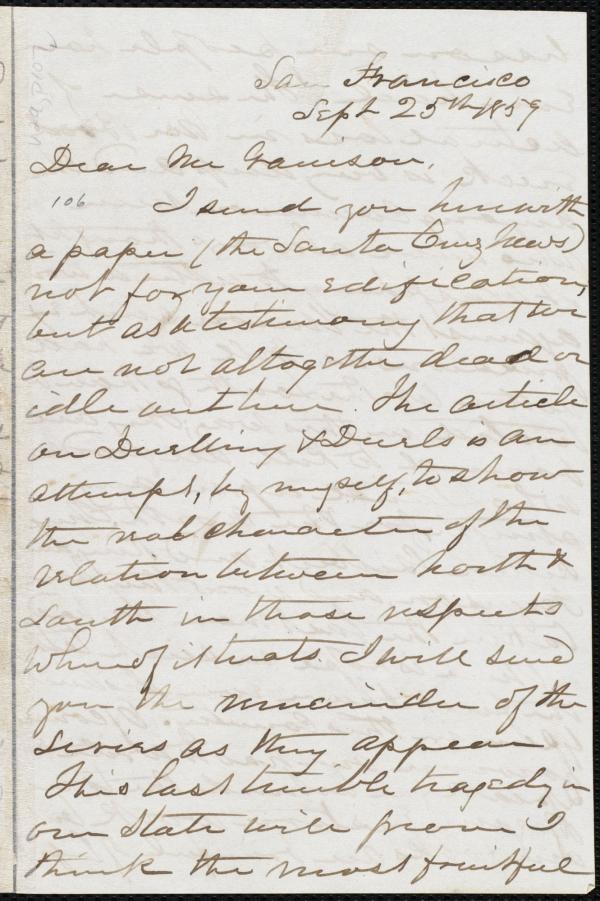 San Francisco
Sept 25th 1859
Dear Mr Garrison,
106
I send you herewith
a paper (the Santa Cruz News)
not for your edification,
but as a testimony that we
are not altogether dead or
idle out here. The article
on Duelling & Duels is an
attempt, by myself, to show
the real character of the
relation between north &
South in those respects
whereof it treats. I will send
you the remainder of the
series as they appear
This last terrible tragedy in
our State will prove I
think the most fruitful